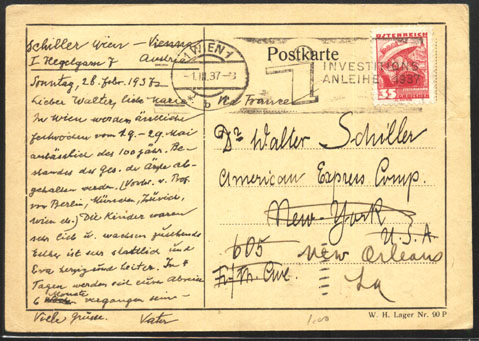 Schiller Wien – Vienna
I Hegelgasse 7 Austria
Sonntag, 28. Febr. 1937
Lieber Walter, liebe Maria
In Wien werden ärztliche
festwochen vom 19.-29. Mai
anlässlich des 100 jähr. Be-
standes der Ges. der Ärzte ab-
gehalten werden. (Vortr. v. Prof.
von Berlin, München, Zürich,
Wien etc.) Die Kinder waren
lieb u. wachsen
ist sehr stattlich und
Eva herzig und heiter. In 8
Tagen werden seit eurer Abreise
6 Monate vergangen sein –
Viele Grüsse. Vater
1 WIEN 1
-1.III.37-
b
Postkarte
INVESTITIONS
ANLEIHE 1937
ÖSTERREICH
35
GROSCHEN
Via France
Dr Walter Schiller
American Express Comp.
New-York
U.S.A
605 New Orleans
La
1.00
W. H. Lager Nr. 90 P